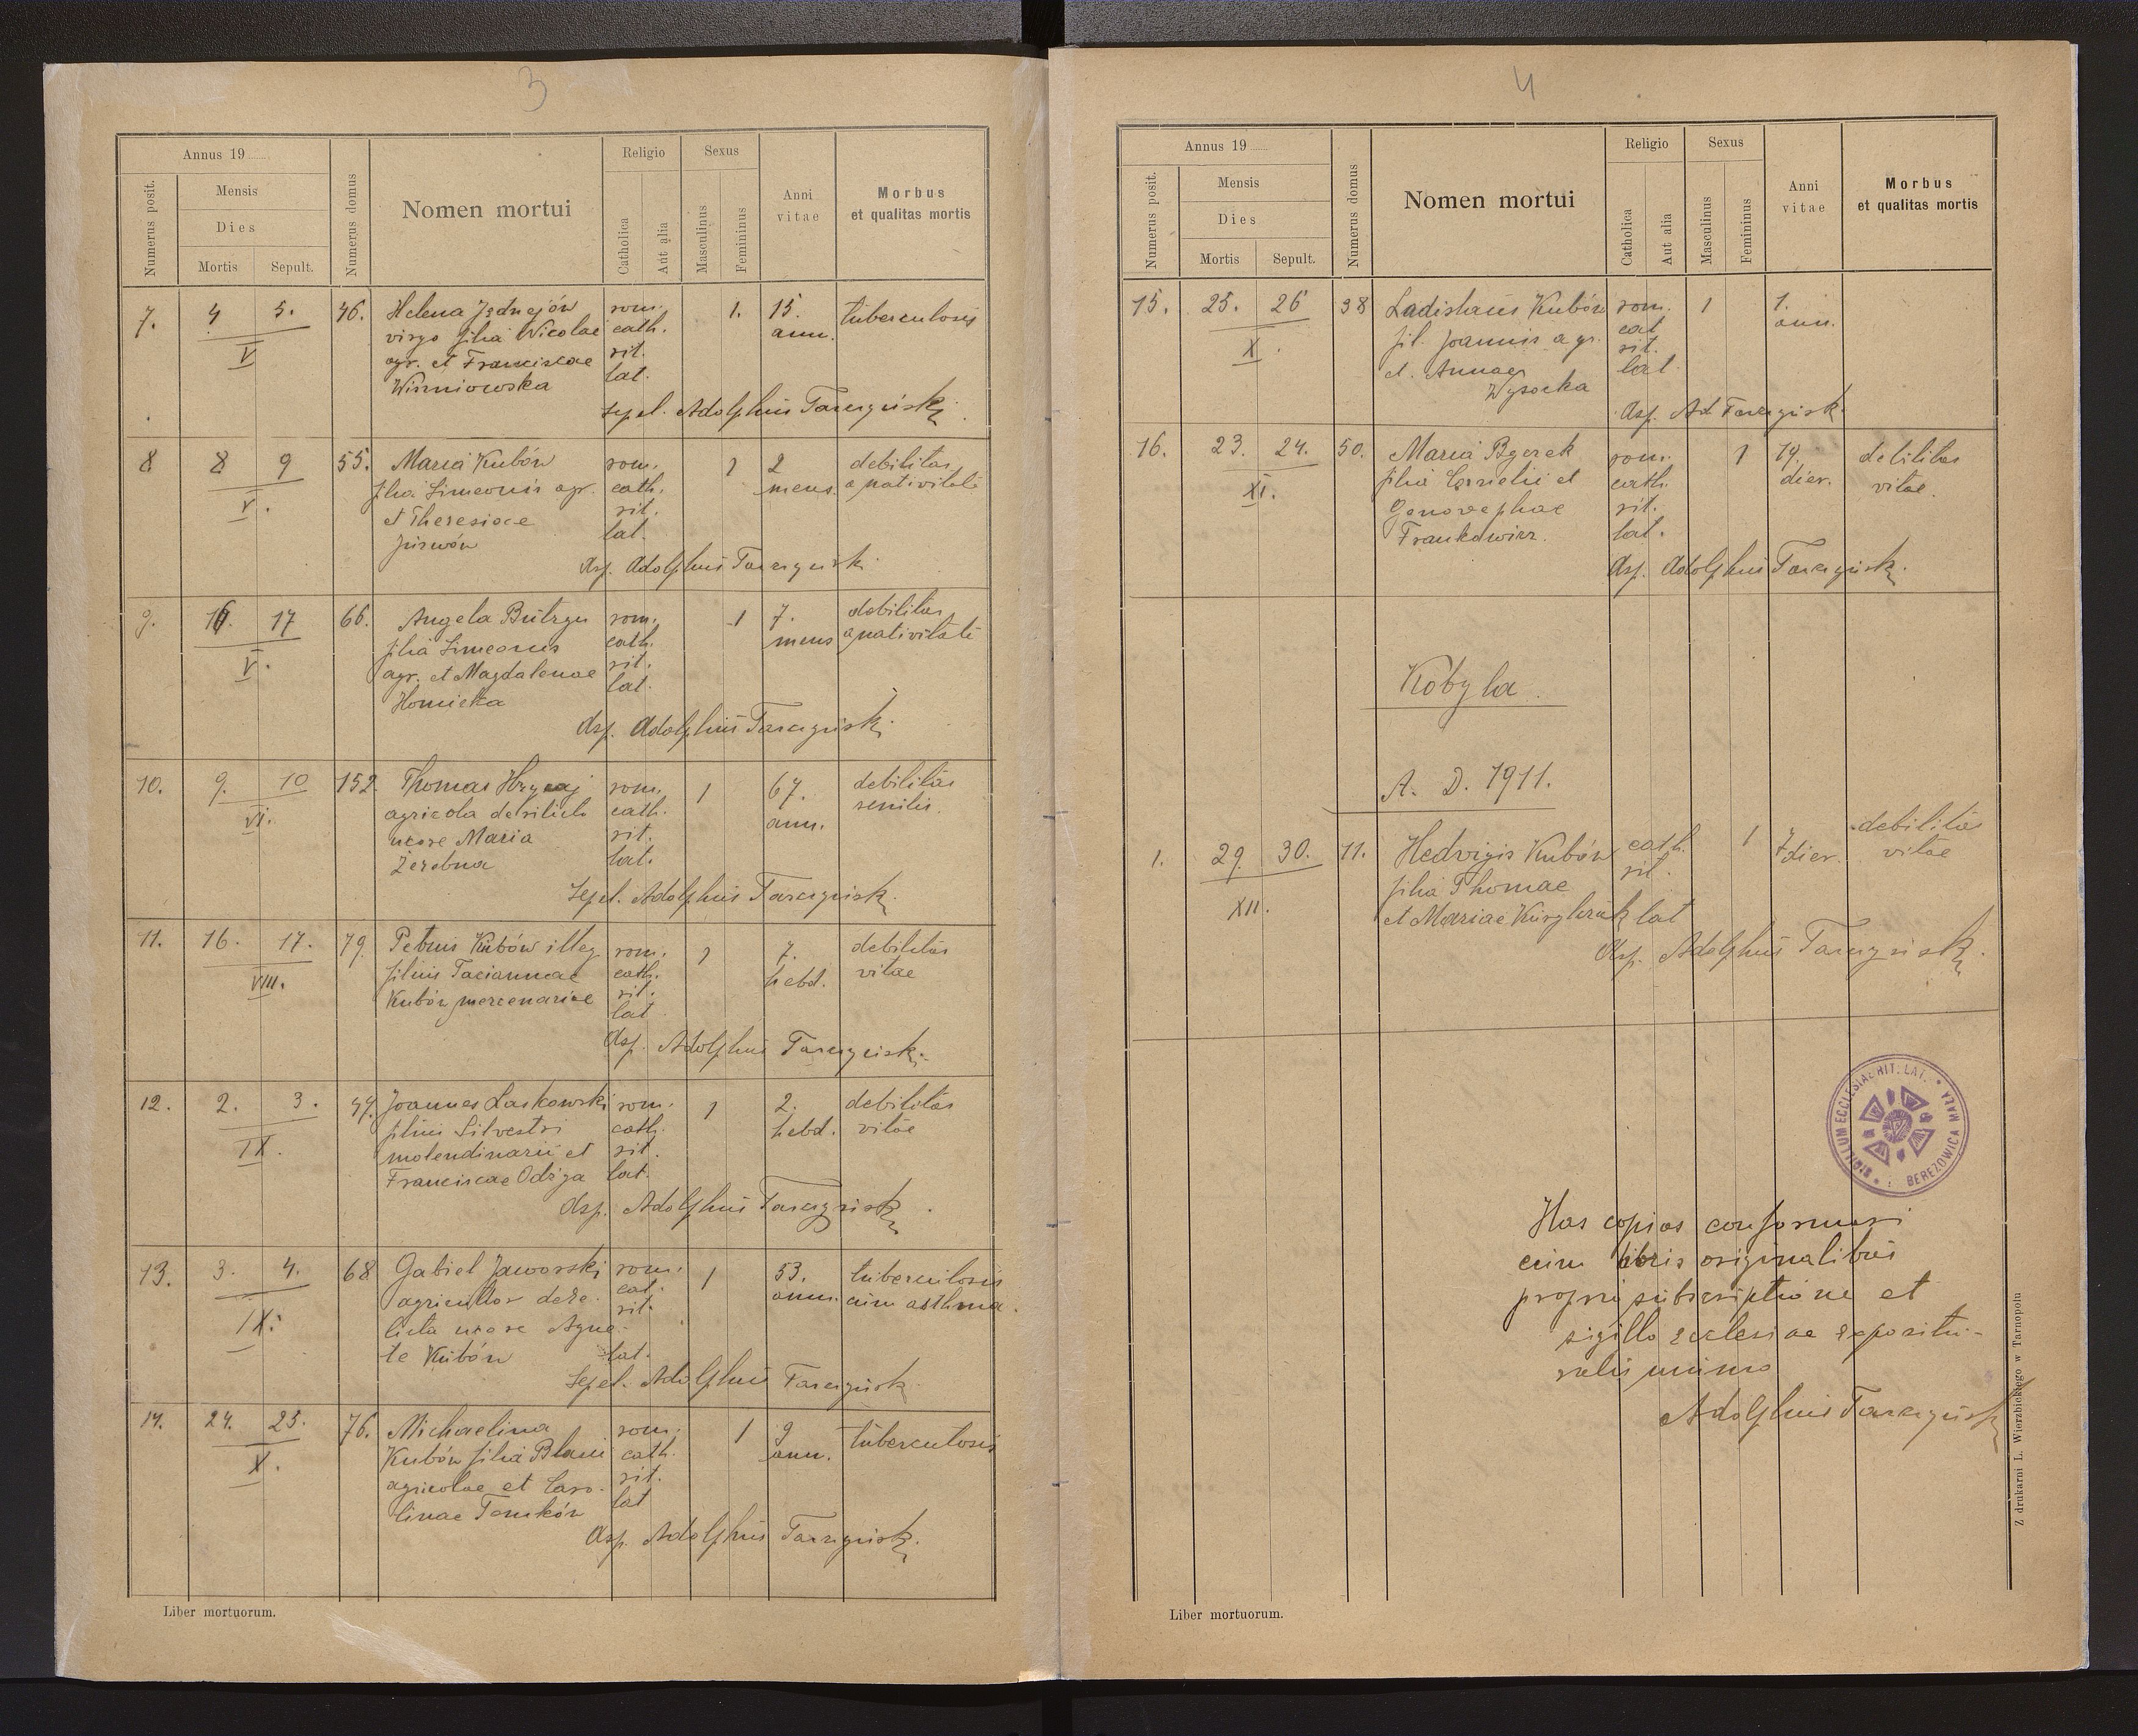 3
Annus 19
Numerus posit.
Mensis
Dies
Mortis
Sepult.
Numerus domus
Nomen mortui
Religio
Catholica
Aut alia
Sexus
Masculinus
Femininus
Anni
vitae
Morbus
et qualitas mortis
7. 4 5. 46. Helena rom. 1. 15. tuberculosis
V
virgo filia Nicolae cath. ann.
agr. et Franciscae rit.
Wiśniowska lat.
Sepel. Adolphus
8 8 9 55. Maria Kubów rom. 1 2 debilitas
V.
filia Simeonis agr. cath. mens. a nativitate
et Theresiae rit.
lat.
Asp. Adolphus
9. 16. 17 66. Angela rom. 1 7. debilitas
V.
filia Simeonis cath. mens a nativitate
agr. et Magdalenae rit.
Homicka lat.
Asp. Adolphus
10. 9. 10 152 Thomas rom. 1 67. debilitas
VI.
agricola cath. ann. senilis.
uxore Maria rit.
Żerebna lat.
Sepel. Adolphus
11. 16. 17. 79. Petrus Kubów illeg. rom. 1 7. debilitas
VIII.
filius Taciannae cath. hebd. vitae
Kubów mercenariae rit.
lat
Asp. Adolphus
12. 2. 3. 44. Joannes Laskowski rom. 1 2. debilitas
IX.
filius Silvestri cath. hebd. vitae
molendinarii et rit.
Franciscae Odyga lat.
Asp. Adolphus
13. 3. 4. 68 Gabiel Jaworski rom. 1 53. tuberculosis
IX.
agricultor dere- cat. ann. cum asthma.
licta uxore Agne- rit.
te Kubów lat.
Sepel. Adolphus
14. 24. 25. 76. Michaelina rom. 1 9 tuberculosis
X.
Kubów filia cath. ann.
agricolae et Caro- rit.
linae Tomków lat
Asp. Adolphus
Liber mortuorum.
4
Annus 19
Numerus posit.
Mensis
Dies
Mortis
Sepult.
Numerus domus
Nomen mortui
Religio
Catholica
Aut alia
Sexus
Masculinus
Femininus
Anni
vitae
Morbus
et qualitas mortis
15. 25. 26 38 Ladislaus Kubów rom. 1 1.
X.
fil. Joannis agr. cat ann.
et. Annae rit.
Wysocka lat
Asp. Ad
16. 23. 24. 50. Maria rom. 1 14. debilitas
XI.
filia et cath. dier. vitae.
Genovephae rit.
Frankowicz. lat.
Asp. Adolphus
Kobyla.
A. D. 1911.
1. 29. 30. 11. Hedvigis Kubów cath. 1 7 dier. debilitas
XII.
vitae
filia Thomae rit.
et Mariae lat
Asp. Adolphus
SIGILLUM ECCLESIAE RIT. LAT. * BEREZOWICA MAŁA *
Has copias conformari
cum libris originalibus
propria subscriptione et
sigillo ecclesiae
Adolphus
Z drukarni L. Wierzbickiego w Tarnopolu
Liber mortuorum.